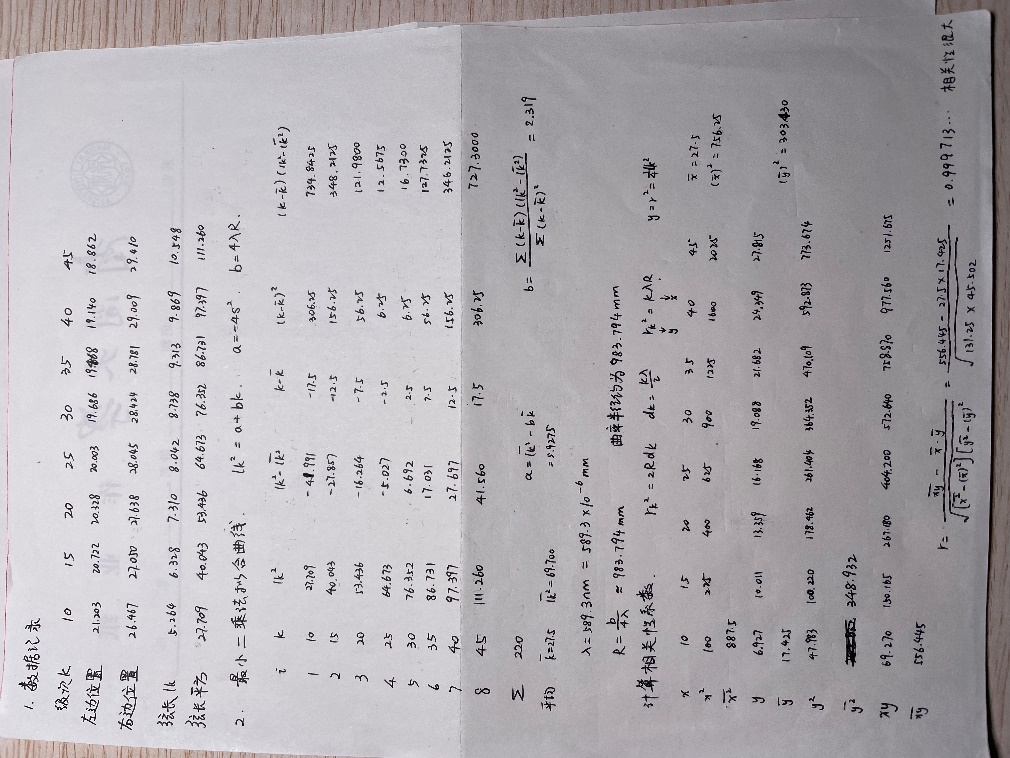 1. 数据记录
级次k 10 15 20 25 30 35 40 45
左边位置 21.203 20.722 20.328 20.003 19.686 19.468 19.140 18.862
右边位置 26.467 27.050 27.638 28.045 28.424 28.781 29.009 29.410
弦长lk 5.264 6.328 7.310 8.042 8.738 9.313 9.869 10.548
弦长平方 27.709 40.043 53.436 64.673 76.352 86.731 97.397 111.260
2. 最小二乘法拟合曲线. lk² = a+bk. a=-4s². b=4λR.
i k lk² lk²-l̄k² k-k̄ (k-k̄)² (k-k̄)(lk²-l̄k²)
1 10 27.709 -41.991 -17.5 306.25 734.8425
2 15 40.043 -27.857 -12.5 156.25 348.2125
3 20 53.436 -16.264 -7.5 56.25 121.9800
4 25 64.673 -5.027 -2.5 6.25 12.5675
5 30 76.352 6.692 2.5 6.25 16.7300
6 35 86.731 17.031 7.5 56.25 127.7325
7 40 97.397 27.697 12.5 156.25 346.2125
8 45 111.260 41.560 17.5 306.25 727.3000
Σ 220
平均 k̄=27.5 l̄k²=69.700 a = l̄k² - bk̄ = 5.9275 b = Σ(k-k̄)(lk²-l̄k²) / Σ(k-k̄)² = 2.319
λ=589.3nm = 589.3×10⁻⁶ mm
R = b/4λ = 983.794 mm 曲率半径约为983.794mm
计算相关性系数. rk² = 2Rdk dk = kλ/2 rk² = kλR. y=r²=¼lk²
y x
x 10 15 20 25 30 35 40 45 x̄=27.5
x² 100 225 400 625 900 1225 1600 2025 (x̄)² = 756.25
x̄² 887.5
y 6.927 10.011 13.359 16.168 19.088 21.682 24.349 27.815
ȳ 17.425 (ȳ)² = 303.430
y² 47.983 100.220 178.462 261.404 364.352 470.109 592.873 773.674
ȳ² 348.932
xy 69.270 150.165 267.180 404.200 572.640 758.870 977.560 1251.675
xy 556.445
r = (xy - x̄·ȳ) / √[x̄²-(x̄)²][ȳ²-(ȳ)²] = (556.445 - 27.5×17.425) / √131.25 × 45.502 = 0.999713... 相关性很大